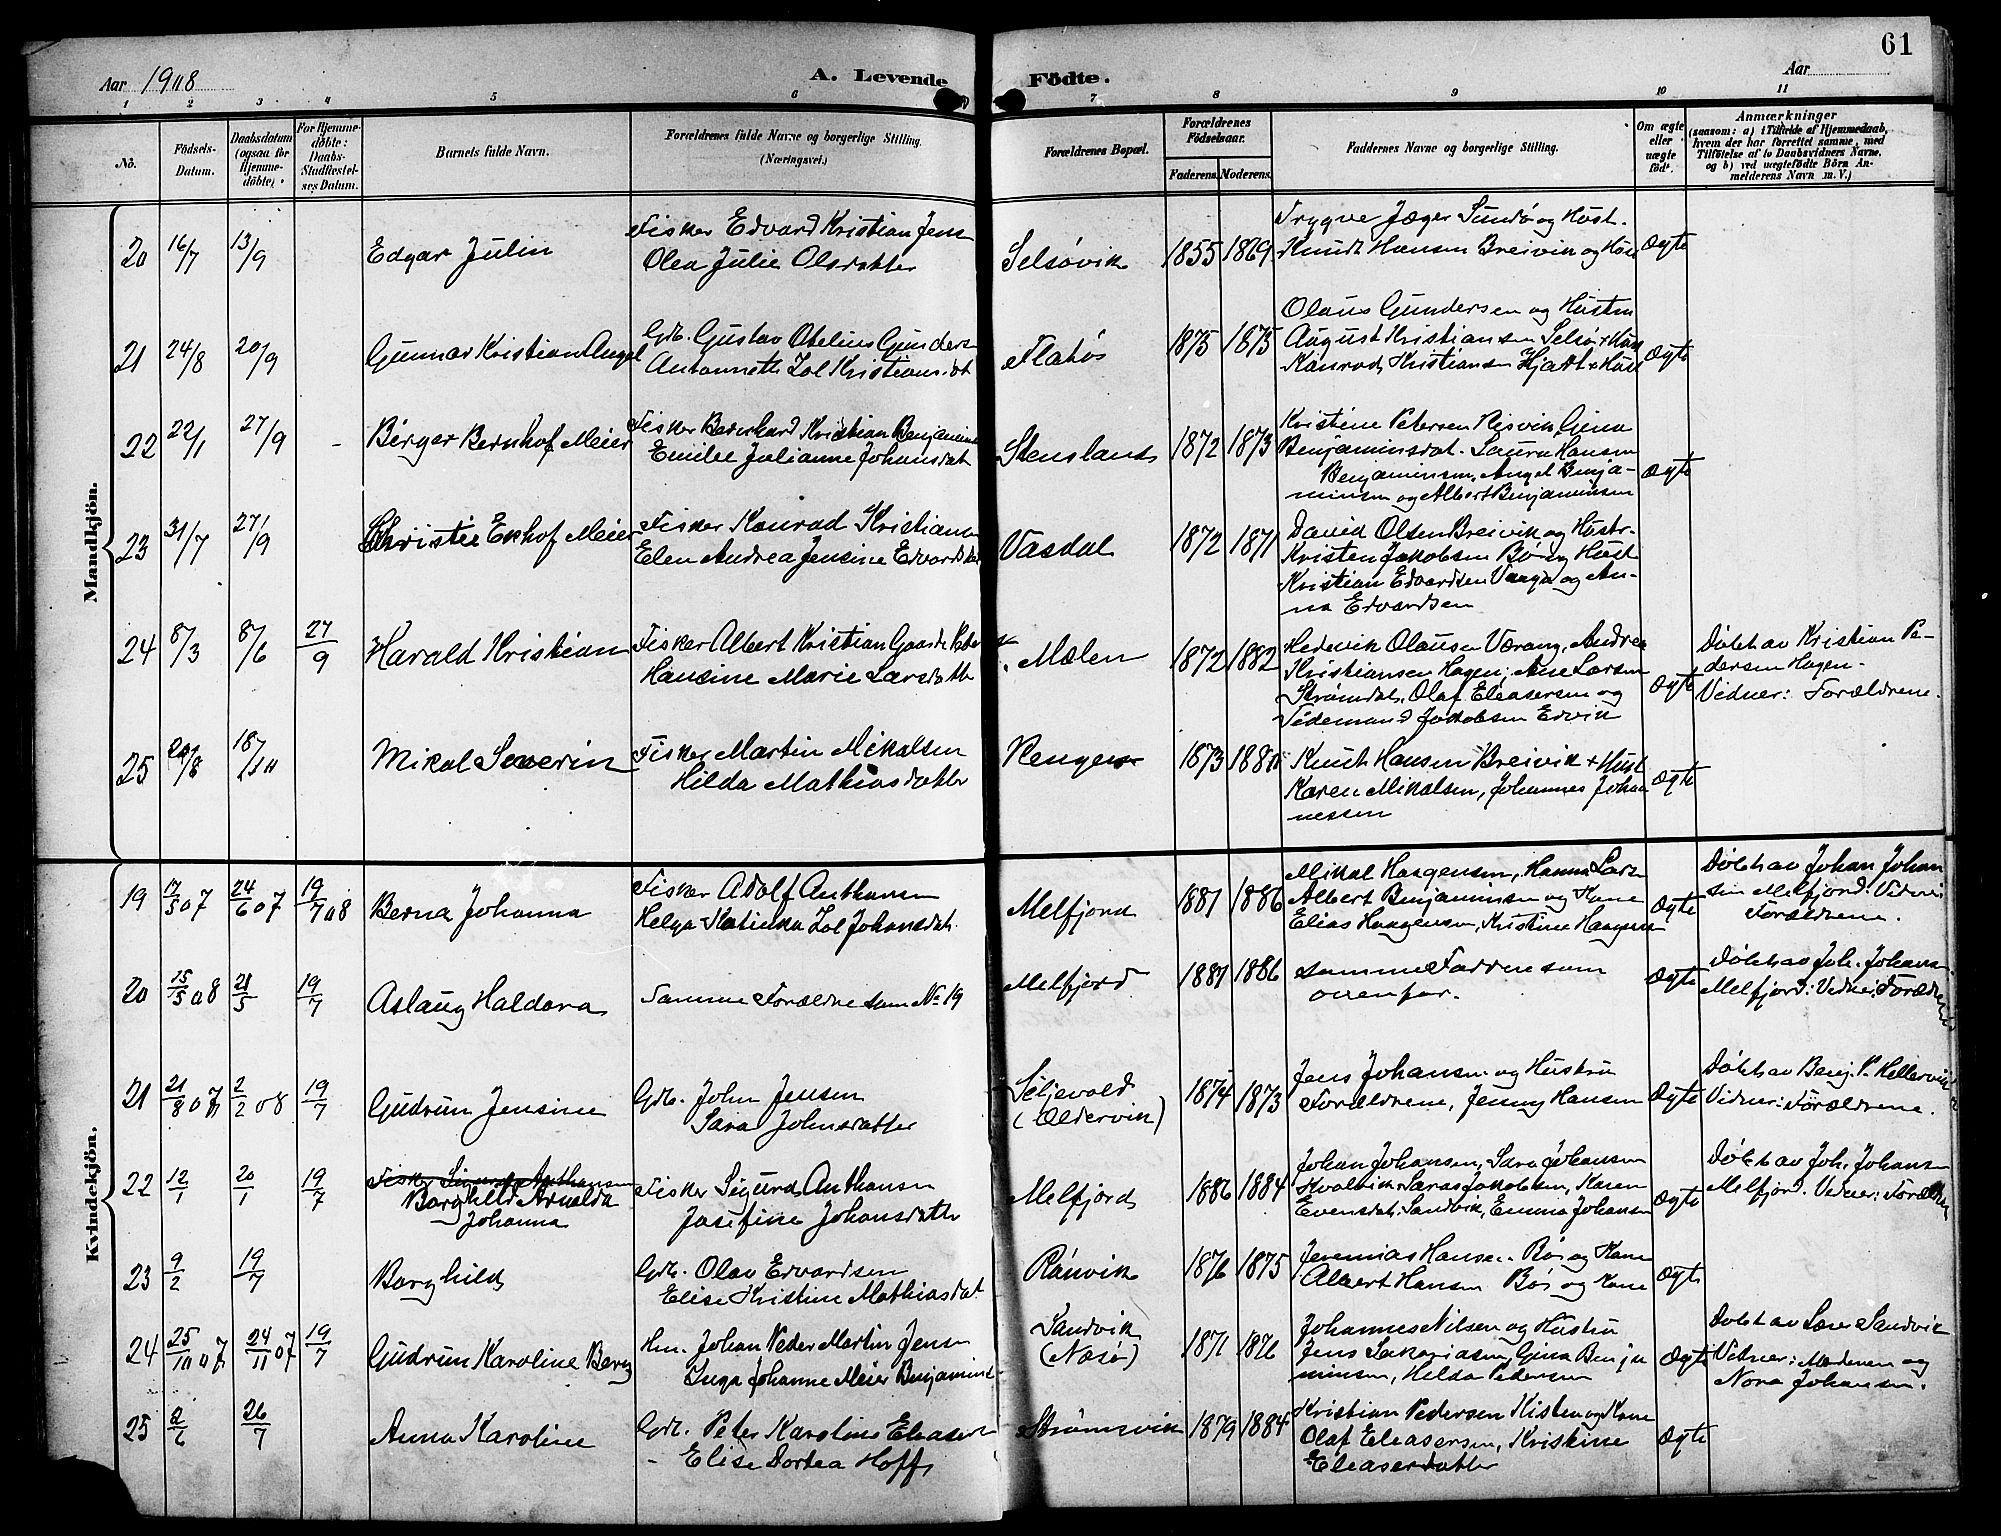 61
Aar 1908
A. Levende Födte.
Aar
1 2 3 4 5 6 7 8 9 10 11
No.
Födsels-Datum.
Daabsdatum (ogsaa for Hjemmedöbte).
For Hjemmedöbte: Daabs-Stadfæstelses Datum.
Barnets fulde Navn.
Forældrenes fulde Navne og borgerlige Stilling.
(Næringsvei.)
Forældrenes Bopæl.
Forældrenes Födselsaar.
Faderens. Moderens.
Faddernes Navne og borgerlige Stilling.
Om ægte eller uægte födt.
Anmærkninger
(saasom: a) i Tilfælde af Hjemmedaab,
hvem der har forrettet samme, med
Tilföielse af to Daabsvidners Navne.
og b) ved uægtefödte Börn An-
melderens Navn m. V.)
Mandkjön.
20 16/7 13/9 Edgar Julin
Fisker Edvard Kristian Jens
Olea Julie Olsdatter
Selsövik 1855 1869
Trygve Jæger Sundö og Hust.
Knudt Hansen Breivik og Hus
Ægte
21 24/8 20/9 Gunnar Kristian Angel
Gdb. Gustav Otelius Gunders
Antonnette Lol Kristiansdat
Flatös 1875 1875
Olaus Gundersen og Hustru
August Kristiansen Selsö + Hus
Konrad Kristiansen Hjart + Hus
Ægte
22 22/1 27/9 - Birger Bernhof Meier
Fisker Bernhard Kristian Benjamins
Emilie Julianne Johansdat
Stensland 1872 1873
Kristine Petersen Risvik, Gina
Benjaminsdat. Laura Hansen
Benjaminsen, Angel Benja-
minsen og Albert Benjaminsen
Ægte
23 31/7 27/9 Christie Ekhof Meier
Fisker Konrad Kristians
Elen Andrea Jensine Edvardsdat
Vasdal 1872 1871
David Olsen Breivik og Hustr.
Kristen Jakobsen Bö og Hust
Kristian Edvardsen Vanga og An-
na Edvardsen
24 8/3 8/6 27/9 Harald Kristian
Fisker Albert Kristian Gaarde Peders
Hansine Marie Larsdatte
Mælen 1872 1882
Hedevik Olausen Værang, Andrea
Kristiansen Hagen, Ane Larsen
Strömdal, Olaf Eleasersen og
Tidemand Jakobsen Edvik
Ægte
Döbt av Kristian Pe-
dersen Hagen.
Vidner: Forældrene.
25 20/8 18/10 Mikal Severin
Fisker Martin Mikalsen
Hilda Mathiasdatter
Rengen 1873 1880
Knut Hansen Breivik + Hust
Karen Mikalsen, Johannes Johan
nessen
Ægte
Kvindekjön.
19 17/5 07 24/6 07 19/7 08 Berna Johanna
Fisker Adolf Anthonsen
Helga Katinka Lol Johansdat.
Melfjord 1881 1886
Mikal Haagensen, Hanna Lars
Albert Benjaminsen og Kone
Elias Haagensen, Kristine Haagens
Ægte
Döbt av Johan Johan
sen Melfjord: Vidner
Forældrene.
20 15/5 08 21/5 19/7 Aslaug Haldora
Samme Forældre som No 19
Melfjord 1881 1886
samme Faddere som
ovenfor.
Ægte
Döbt av Joh. Johans.
Melfjord: Vidner: Forældrene
21 21/8 07 2/2 08 19/7 Gudrun Jensine
Gdb. John Jensen
Sara Johnsdatter
Seljevold
(Ældervik)
1874 1873
Jens Johansen og Hustru
Forældrene, Jenny Hansen
Ægte
Döbt av Benj. P. Hellervik
Vidner: Forældrene.
22 12/1 20/1 19/7 Fisker Sigurd Anthonsen
Borghild Arnolda
Johanna
Fisker Sigurd Anthonsen
Josefine Johansdatte
Melfjord 1886 1884
Johan Johansen, Sara Johansen
Kvalvik, Saras Jakobsen, Karen
Evensdat. Sandvik, Emma Johansen
Ægte
Döbt av Joh. Johansen
Melfjord. Vidner: Foræld
23 9/2 19/7 Borghild
Gdb. Olav Edvardsen
Elise Kristine Mathiasdat
Rånvik 1876 1875
Jeremias Hansen Bö og Kone
Albert Hansen Bö og Kone
Ægte
24 25/10 07 24/11 07 19/7 Gudrun Karoline Berg
Hm. Johan Peder Martin Jens
Inga Johanne Meier Benjamind
Sandvik
(Nesö)
1871 1876
Johannes Nilsen og Hustru
Jens Sakariasen, Gina Benja
minsen, Hilda Pedersen
Ægte
Döbt av Lære Sandvik
Vidner: Moderen og
Nora Johansen.
25 2/6 26/7 Anna Karoline
Gdb. Peter Karolius Eleasers
- Elise Dortea Hoff
Strömsvik 1879 1884
Kristian Pedersen Kisten og Kone
Olaf Eleasersen, Kristine
Eleaserdatter
Ægte